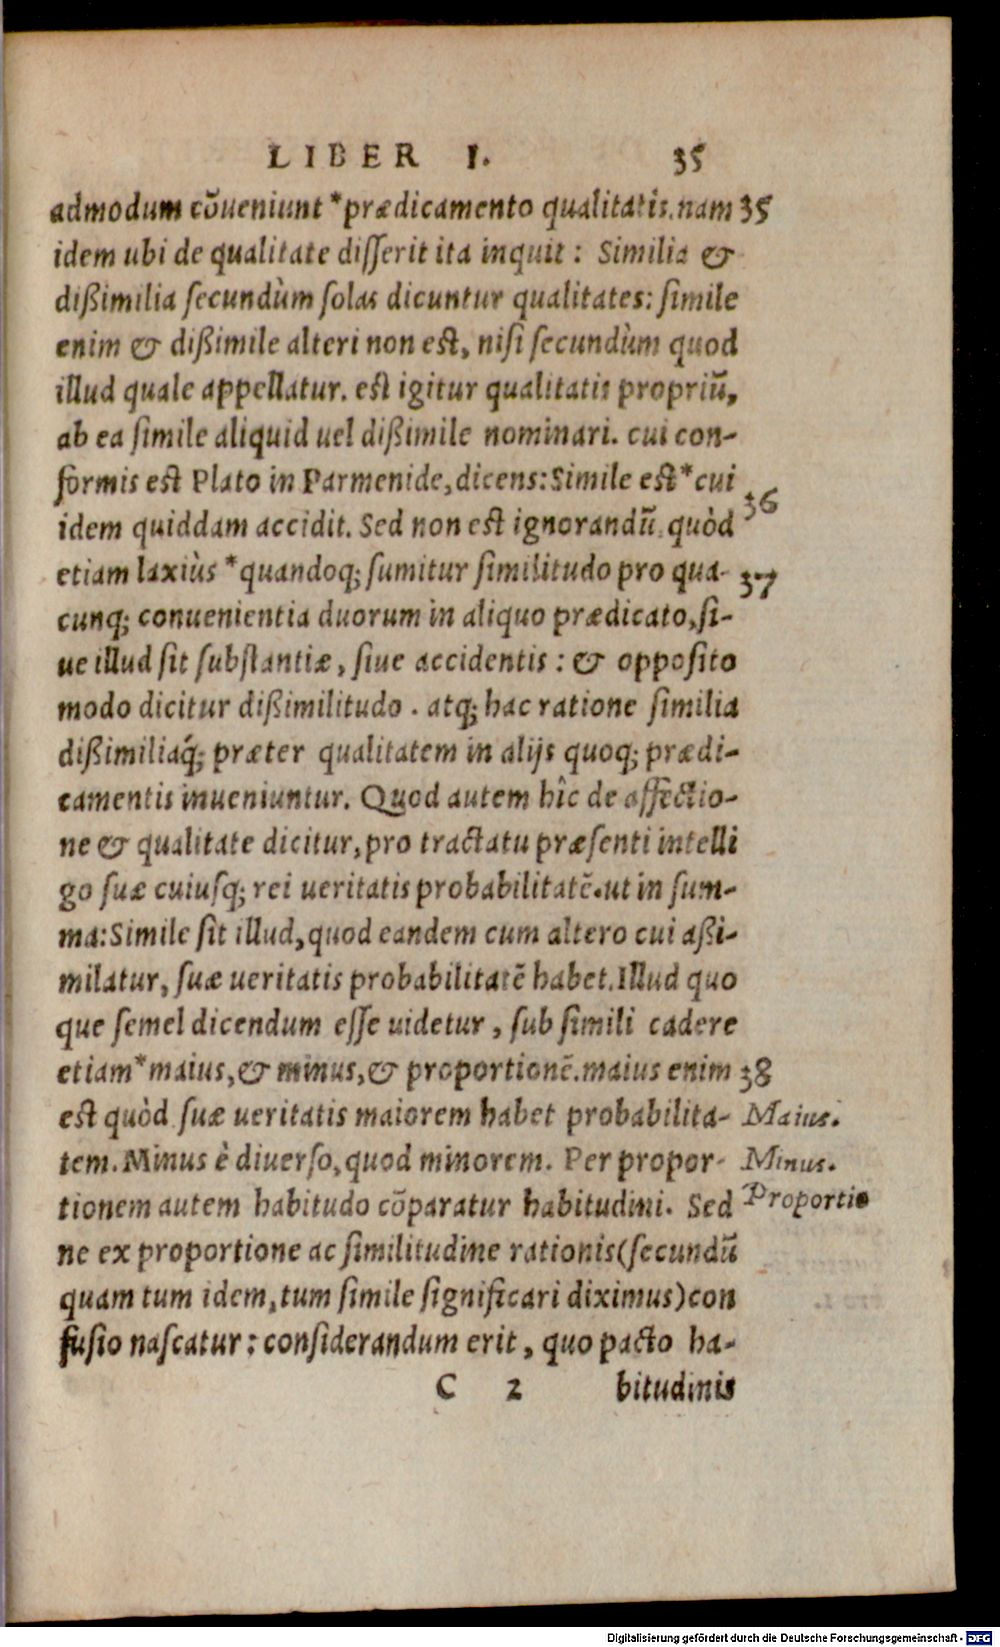 LIBER I. 35
admodum cōueniunt *prædicamento qualitatis. nam 35
idem ubi de qualitate disserit ita inquit: Similia &
dißimilia secundùm solas dicuntur qualitates: simile
enim & dißimile alteri non est, nisi secundùm quod
illud quale appellatur. est igitur qualitatis propriū,
ab ea simile aliquid uel dißimile nominari. cui con-
formis est Plato in Parmenide, dicens: Simile est *cui 36
idem quiddam accidit. Sed non est ignorandū quòd
etiam laxiùs *quandoq; sumitur similitudo pro qua- 37
cunq; conuenientia duorum in aliquo prædicato, si-
ue illud sit substantiæ, siue accidentis: & opposito
modo dicitur dißimilitudo. atq; hac ratione similia
dißimiliaq́; præter qualitatem in alijs quoq; prædi-
camentis inueniuntur. Quod autem hîc de affectio-
ne & qualitate dicitur, pro tractatu præsenti intelli
go suæ cuiusq; rei ueritatis probabilitatē. ut in sum-
ma: Simile sit illud, quod eandem cum altero cui aßi-
milatur, suæ ueritatis probabilitatē habet. Illud quo
que semel dicendum esse uidetur, sub simili cadere
etiam *maius, & minus, & proportionē. maius enim 38
est quòd suæ ueritatis maiorem habet probabilita- Maius.
tem. Minus è diuerso, quod minorem. Per propor- Minus.
tionem autem habitudo cōparatur habitudini. Sed Proportio
ne ex proportione ac similitudine rationis (secundū
quam tum idem, tum simile significari diximus) con
fusio nascatur: considerandum erit, quo pacto ha-
C 2 bitudinis
Digitalisierung gefördert durch die Deutsche Forschungsgemeinschaft - DFG